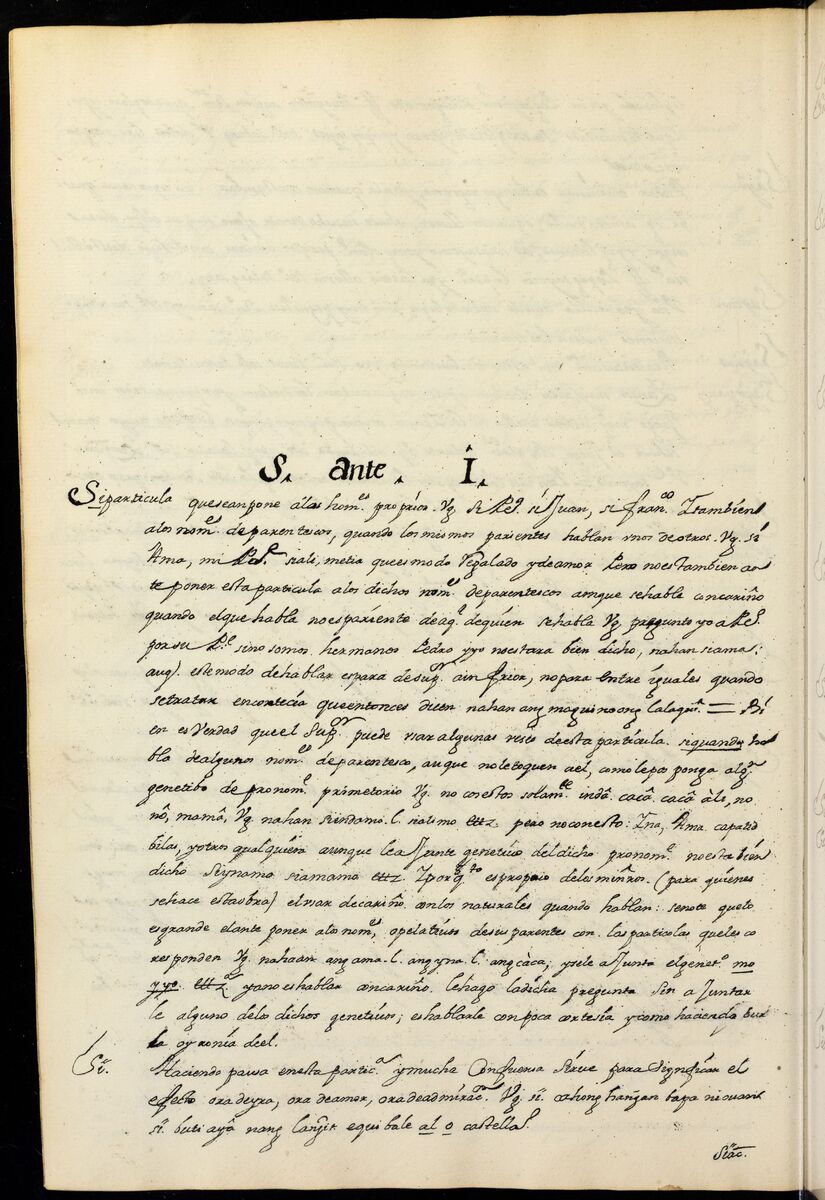 S. ante. I.
Si particula que se anpone álas nom.es proprios. Vg. si Pe.o sí Juan, si fran.co Y tambien
alos nom.es de parentescos, quando los mismos parientes hablan vnos de otros. Vg. sí
Ama, mi P.e siali, mi tia que es modo regalado y de amor Pero no es tambien an
te poner esta particula a los dichos nom.es de parentescos aunque se habla con cariño
quando el que habla no es pariente de aq.l de quien se habla Vg. pregunto yo a Pe.o
por su P.e sino somos hermanos Pedro y yo no estara bien dicho, nahan si ama:
auq). este modo de hablar es para de sup.or a inferior, no para entre iguales quando
se tratan en cortecia que entonces dicen nahan ang maguinoong lalaqui = Bi
en es Verdad que el Sup.or puede vsar algunas veses de esta particula si quando ha
bla de algunos nom.es de parentesco, auque no le toquen a el, como le pos ponga alg.n
genetibo de pronom.e primetorio Vg. no con estos solam.te indâ. cacâ. cacâ àli, no
nô, mamâ, Vg. nahan si indamo. l. sialimo ettz. pero no con esto: Ina, Ama. capatid
bilas, y otros qualquiera aunque le a Junte genetiuo del dicho pronom.e no esta bien
dicho si ynamo siamamo ettz. Y porq. q.to es proprio de los miñros. (para quienes
se hace esta obra) el vsar de cariño con los naturales quando hablan: se note que to
es grande el ante poner a lo nom.es, opelatiuos de sus parentes con las particolas que les co
responden Vg. nahaan ang ama. l. ang yna. l. ang càca, y se le a Junta el genet.o mo
y yo. ettz. ya no es hablar con cariño. le hago la dicha pregunta sin a Juntar
le alguno de lo dichos genetiuos; es hablarle con poca cortesía y como haciendo bur
la o yronía de el.
Si. Haciendo pausa en esta partic.a y mucha Con fuersa sirue para significar el
efecto ora de yra, ora de amor, ora de admirac.n Vg. si. cahong hañgan bapa ni ouan
si. buti aya nang lañgit equibale al o castella.o
Siac.